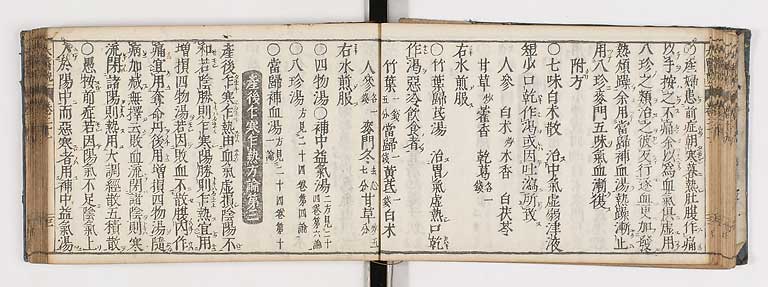 ○一產婦患前症朝寒暮熱肚腹作痛
以手按之不痛余以爲血氣俱虛用
八珍之類治之彼反行逐血更加發
熱煩躁余用當歸補血湯熱躁漸止
用八珍麥門五味氣血漸復
附方
○七味白术散 治中氣虛弱津液
短少口乾作渴或因吐瀉所致
人參 白术 木香 白茯苓
甘草 藿香 乾葛
右水煎服
○竹葉歸芪湯 治胃氣虛熱口乾
作渴惡冷飲食者
竹葉 當歸 黃芪 白术
人參 麥門冬 甘草
右水煎服
○四物湯○補中益氣湯
○八珍湯 方見二十四卷第四論
○當歸補血湯 方見二十四卷第十一論
產後乍寒乍熱方論第三
產後乍寒乍熱由血氣虛損陰陽不
和若陰勝則乍寒陽勝則乍熱宜用
增損四物湯若因敗血不散腹內作
痛宜用奪命丹後用增損四物湯隨
病加減無擇云敗血流閉諸陰則寒
流閉諸陽則熱用大調經散五積散
○愚按前症若因陽氣不足陰氣上
入於陽中而惡寒者用補中益氣湯